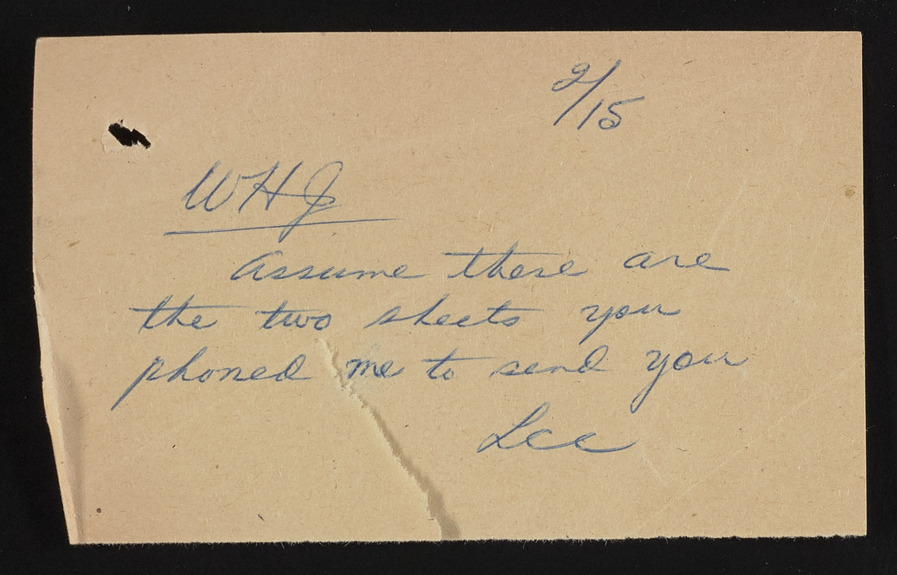 2/15
WHJ
Assume these are
the two sheets you
phoned me to send you
Lee